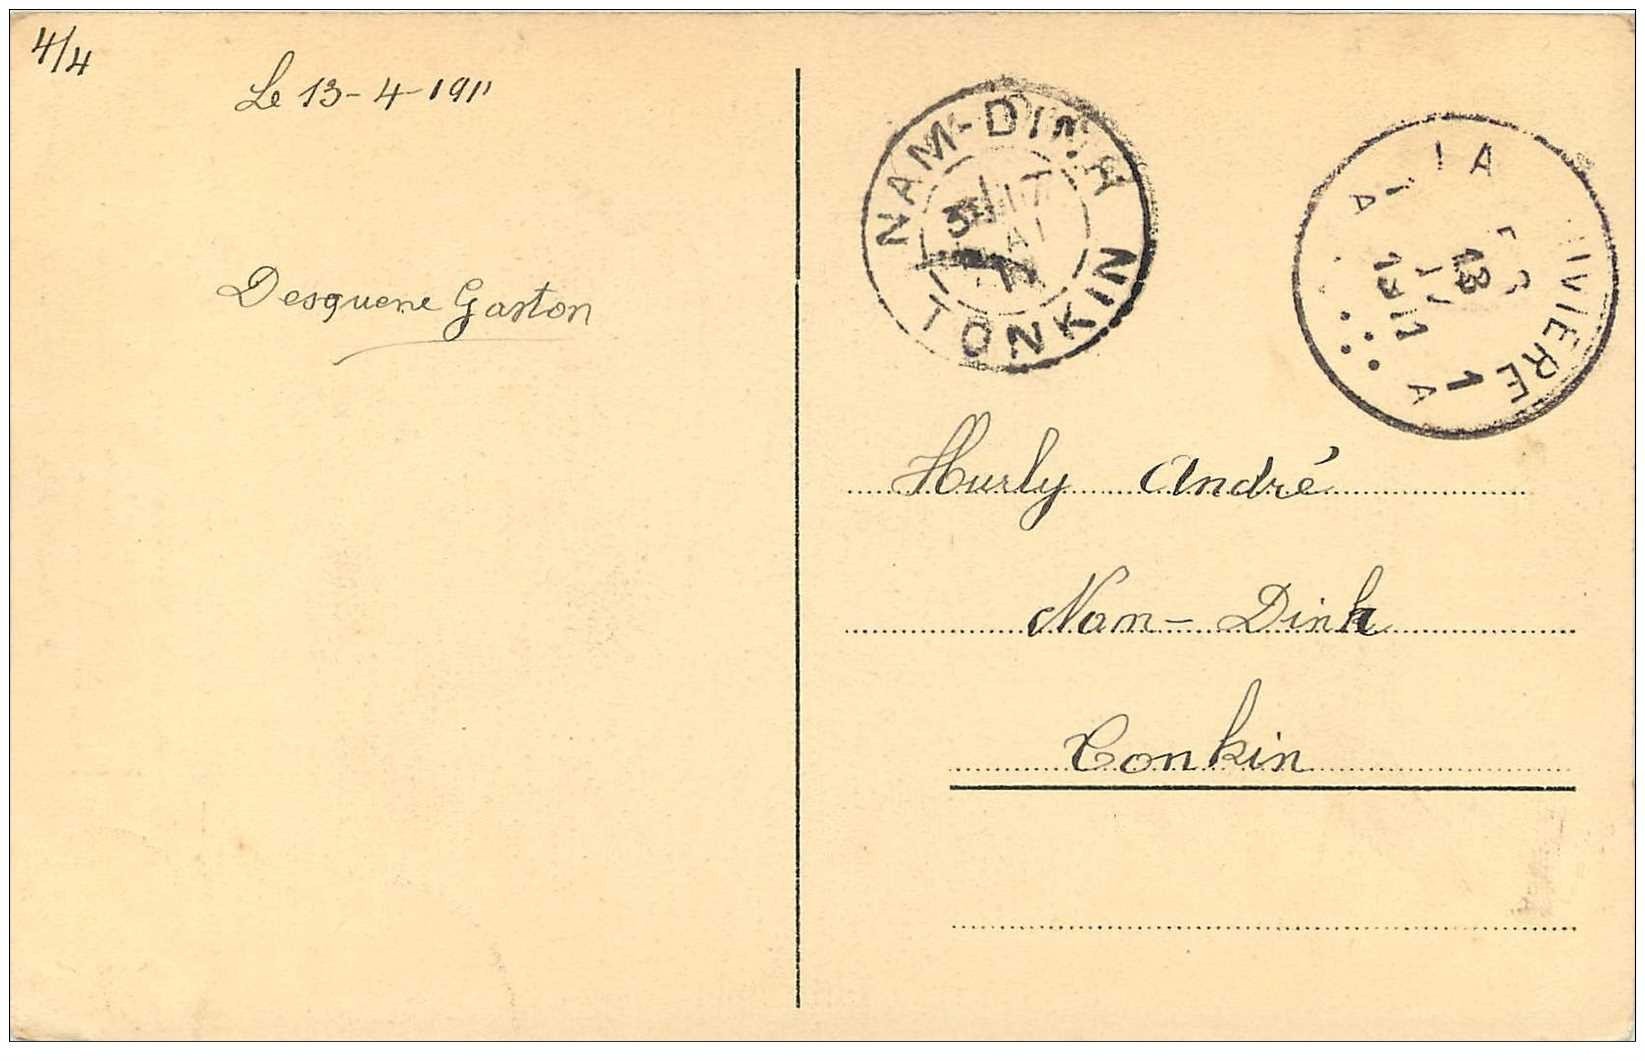 4/4
Le 13-4-1911
Desquene Gaston
NAM-DINH
TONKIN
13
IV
1911
1
Hurly André
Nam-Dinh
Tonkin